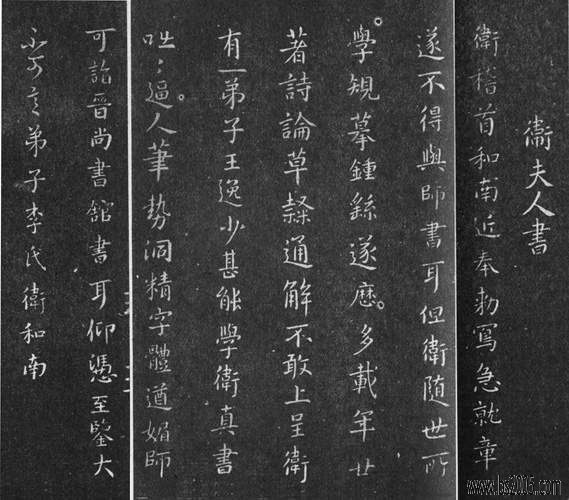 衞夫人書
衛稽首和南近奉勅寫急就章
遂不得與師書耳但衛随世所
學規摹鍾繇遂歷多載年廿
著詩論草隸通解不敢上呈衛
有一弟子王逸少甚能學衛真書
咄〻逼人筆勢洞精字體遒媚師
可詣晉尚書舘書耳仰憑至鑒大
不可言弟子李氏衛和南
www.bs2005.com